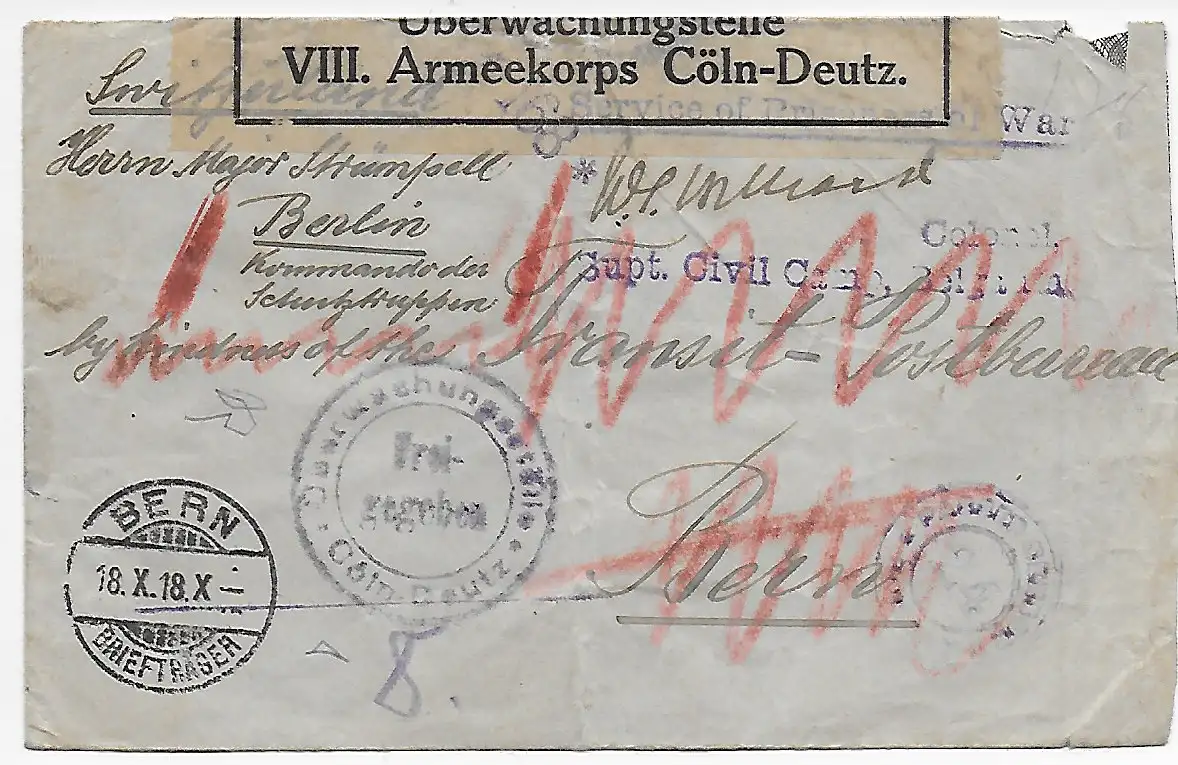 Überwachungstelle
VIII. Armeekorps Cöln-Deutz.
Switzerland
Service of Prisoners of War
Herrn Major Strümpell
Berlin
Kommando der
Schutztruppen
Colonel.
Supt. Civil Camp,
by kindness of the Transit-Postbureau
Bern
Überwachungsstelle
Frei-
gegeben
Cöln-Deutz
BERN
18.X.18.X-
BRIEFTRÄGER
8